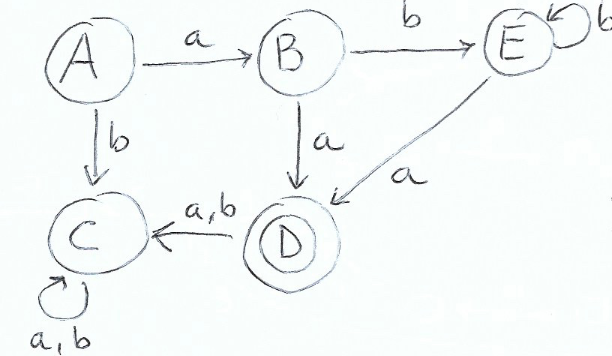 A
a
B
b
E
b
b
a
a
C
a,b
D
a,b